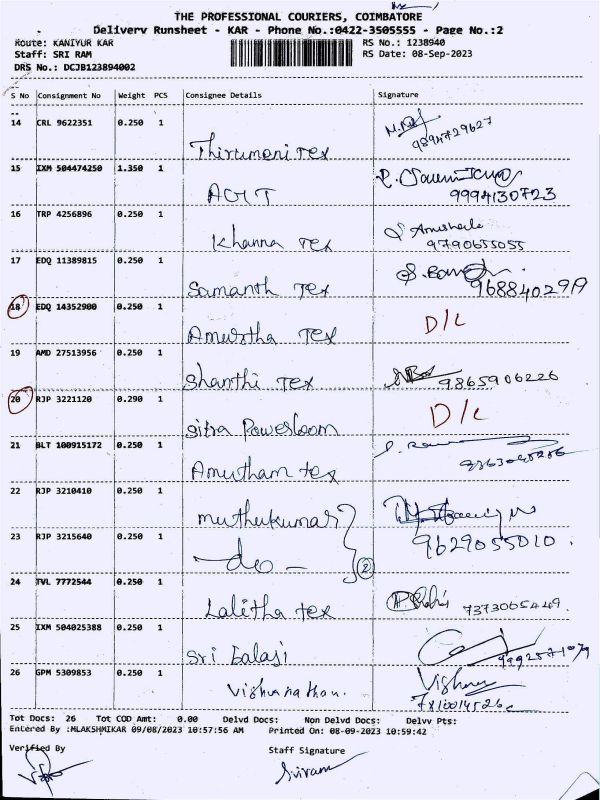 THE PROFESSIONAL COURIERS, COIMBATORE
Delivery Runsheet - KAR - Phone No.:0422-3505555 - Page No.:2
Route: KANIYUR KAR
RS No.: 1238940
Staff: SRI RAM
RS Date: 08-Sep-2023
DRS No.: DCJB123894002
S No Consignment No Weight PCS Consignee Details Signature
14 CRL 9622351 0.250 1 Thirumani Tex 9894729627
15 IXM 504474250 1.350 1 9994130723
16 TRP 4256896 0.250 1 Khanna Tex 9790655055
17 EDQ 11389815 0.250 1 Samanth Tex
18 EDQ 14352900 0.250 1 Amurtha Tex D/L
19 AMD 27513956 0.250 1 Shanthi Tex 9865906226
20 RJP 3221120 0.290 1 Sitra Powerloom D/L
21 BLT 100915172 0.250 1 Amutham tex
22 RJP 3210410 0.250 1 muthukumar
23 RJP 3215640 0.250 1 -do- 2 9629055010.
24 TVL 7772544 0.250 1 Lalitha tex 7373065449.
25 IXM 504025388 0.250 1 Sri balaji
26 GPM 5309853 0.250 1 Vishwanathan. Vishnu
Tot Docs: 26 Tot COD Amt: 0.00 Delvd Docs: Non Delvd Docs: Delvv Pts:
Entered By :MLAKSHMIKAR 09/08/2023 10:57:56 AM Printed On: 08-09-2023 10:59:42
Verified By Staff Signature
Sriram